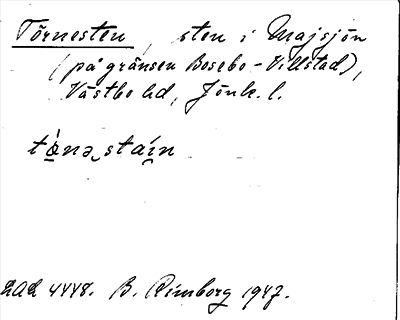 Törnesten, sten i Majsjön
(på gränsen Bosebo-Villstad),
Västbo hd, Jönk. l.
tὰ̠nə staín
LAL 4448. B. Rimborg 1947.